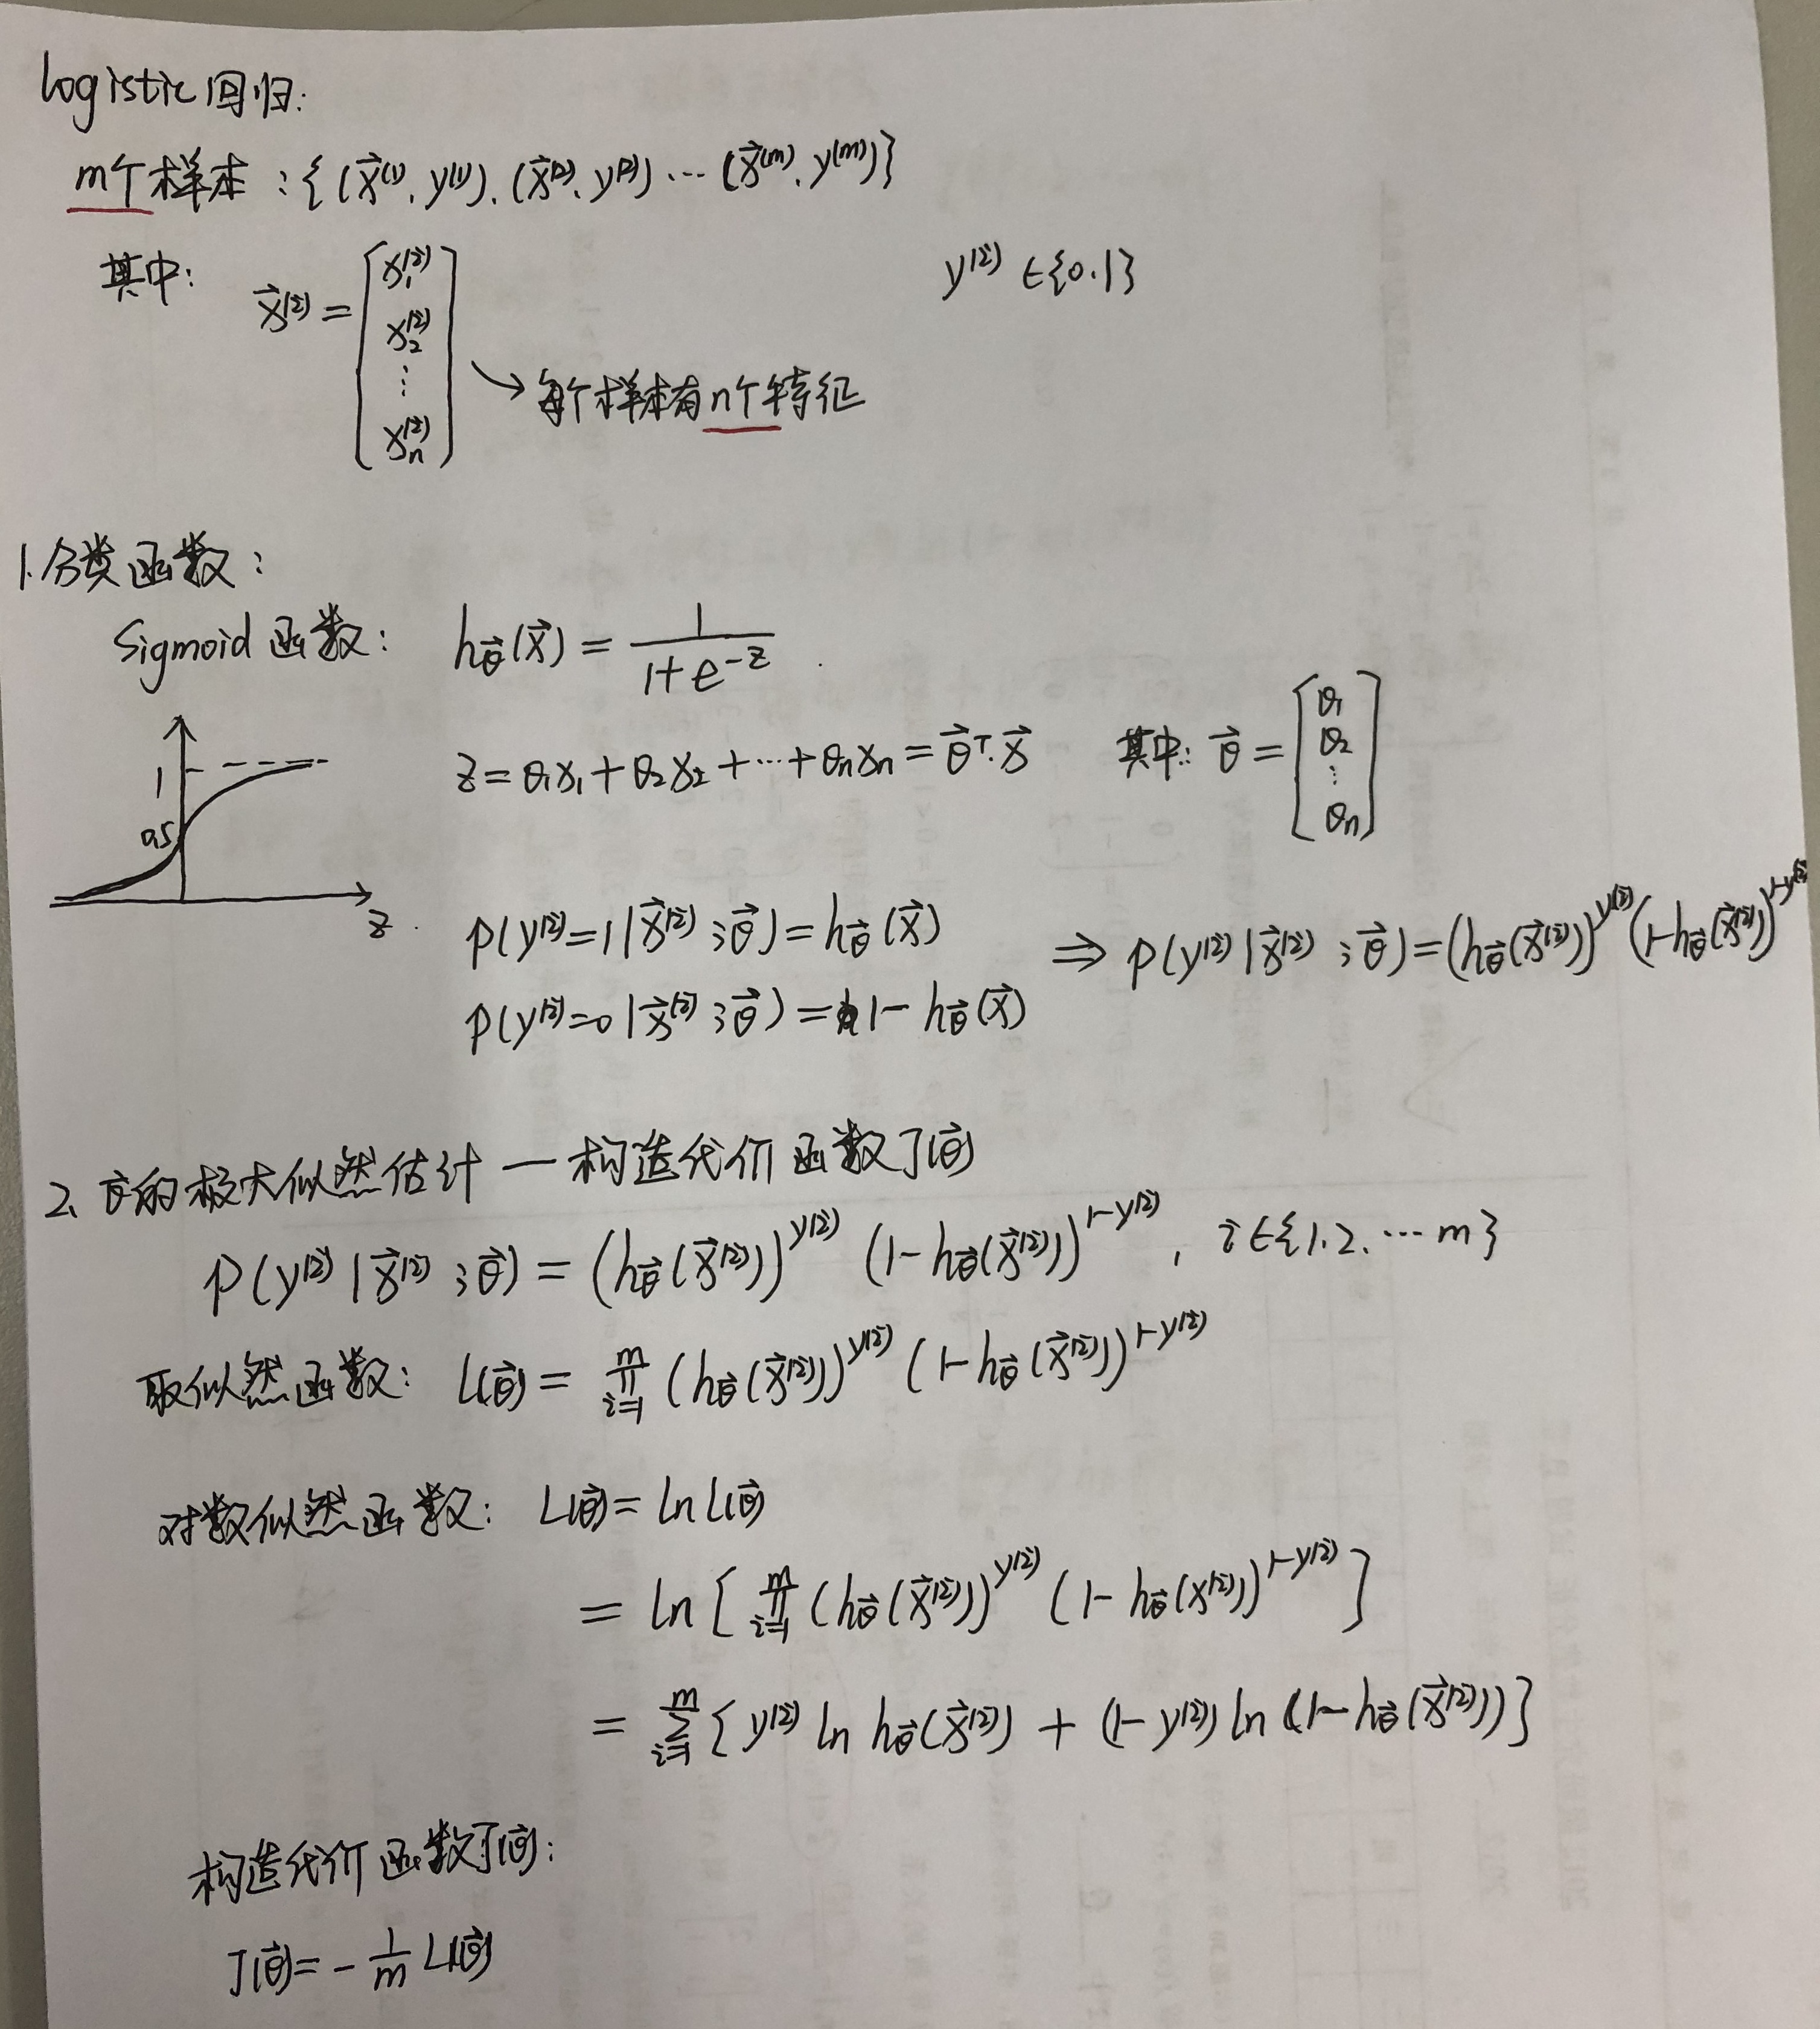 logistic回归:
m个样本:{(x⃗⁽¹⁾, y⁽¹⁾), (x⃗⁽²⁾, y⁽²⁾) ⋯ (x⃗⁽ᵐ⁾, y⁽ᵐ⁾)}
其中: x⃗⁽ⁱ⁾ = [x₁⁽ⁱ⁾ x₂⁽ⁱ⁾ ⋮ xₙ⁽ⁱ⁾] y⁽ⁱ⁾ ∈ {0, 1}
→ 每个样本有n个特征
1. 分类函数:
Sigmoid 函数: h_θ⃗(x⃗) = 1/(1+e^(-z))
z = θ₁x₁ + θ₂x₂ + ⋯ + θₙxₙ = θ⃗ᵀ·x⃗ 其中: θ⃗ = [θ₁ θ₂ ⋮ θₙ]
1
0.5
z
p(y⁽ⁱ⁾=1 | x⃗⁽ⁱ⁾; θ⃗) = h_θ⃗(x⃗) ⇒ p(y⁽ⁱ⁾ | x⃗⁽ⁱ⁾; θ⃗) = (h_θ⃗(x⃗⁽ⁱ⁾))^(y⁽ⁱ⁾) (1-h_θ⃗(x⃗⁽ⁱ⁾))^(1-y⁽ⁱ⁾)
p(y⁽ⁱ⁾=0 | x⃗⁽ⁱ⁾; θ⃗) = 1 - h_θ⃗(x⃗)
2. θ⃗的极大似然估计 — 构造代价函数J(θ⃗)
p(y⁽ⁱ⁾ | x⃗⁽ⁱ⁾; θ⃗) = (h_θ⃗(x⃗⁽ⁱ⁾))^(y⁽ⁱ⁾) (1-h_θ⃗(x⃗⁽ⁱ⁾))^(1-y⁽ⁱ⁾), i∈{1, 2, ⋯ m}
取似然函数: L(θ⃗) = ∏_(i=1)^m (h_θ⃗(x⃗⁽ⁱ⁾))^(y⁽ⁱ⁾) (1-h_θ⃗(x⃗⁽ⁱ⁾))^(1-y⁽ⁱ⁾)
对数似然函数: L(θ⃗) = ln L(θ⃗)
= ln [∏_(i=1)^m (h_θ⃗(x⃗⁽ⁱ⁾))^(y⁽ⁱ⁾) (1-h_θ⃗(x⁽ⁱ⁾))^(1-y⁽ⁱ⁾)]
= ∑_(i=1)^m {y⁽ⁱ⁾ ln h_θ⃗(x⃗⁽ⁱ⁾) + (1-y⁽ⁱ⁾) ln (1-h_θ⃗(x⃗⁽ⁱ⁾))}
构造代价函数J(θ⃗):
J(θ⃗) = -1/m L(θ⃗)